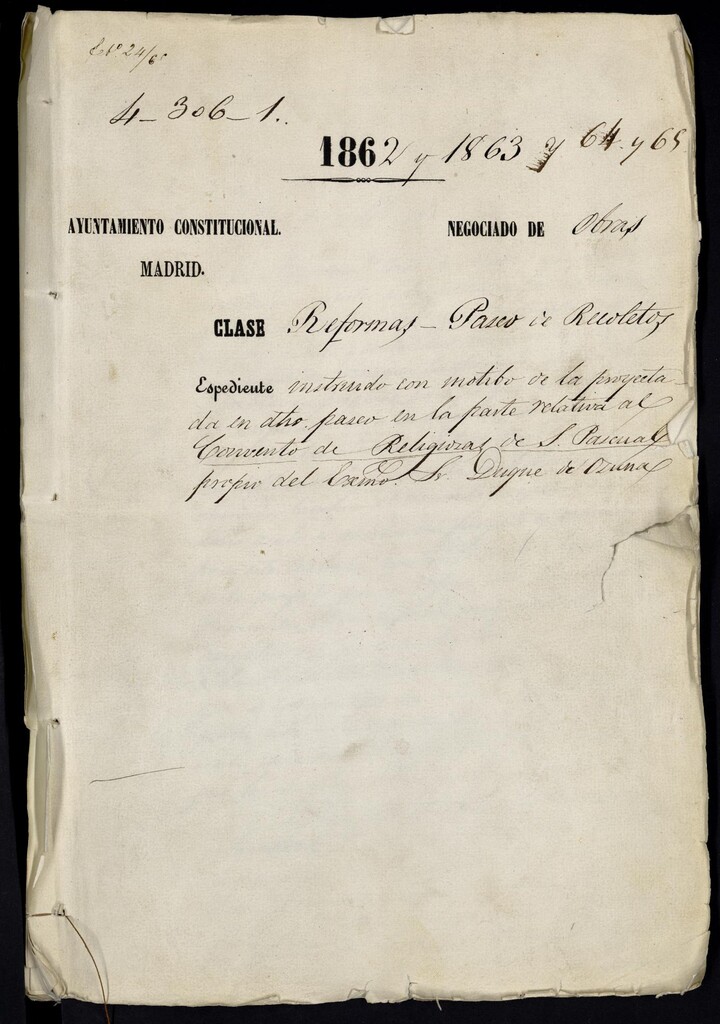 24/6
4-306-1..
1862 y 1863 y 64 y 65
AYUNTAMIENTO CONSTITUCIONAL.
MADRID.
NEGOCIADO DE Obras
CLASE Reformas - Paseo de Recoletos
Espediente instruido con motibo de la proyecta-
da en dho. paseo en la parte relativa al
Convento de Religiosas de S. Pascual
propio del Exmo. Sr. Duque de Osuna